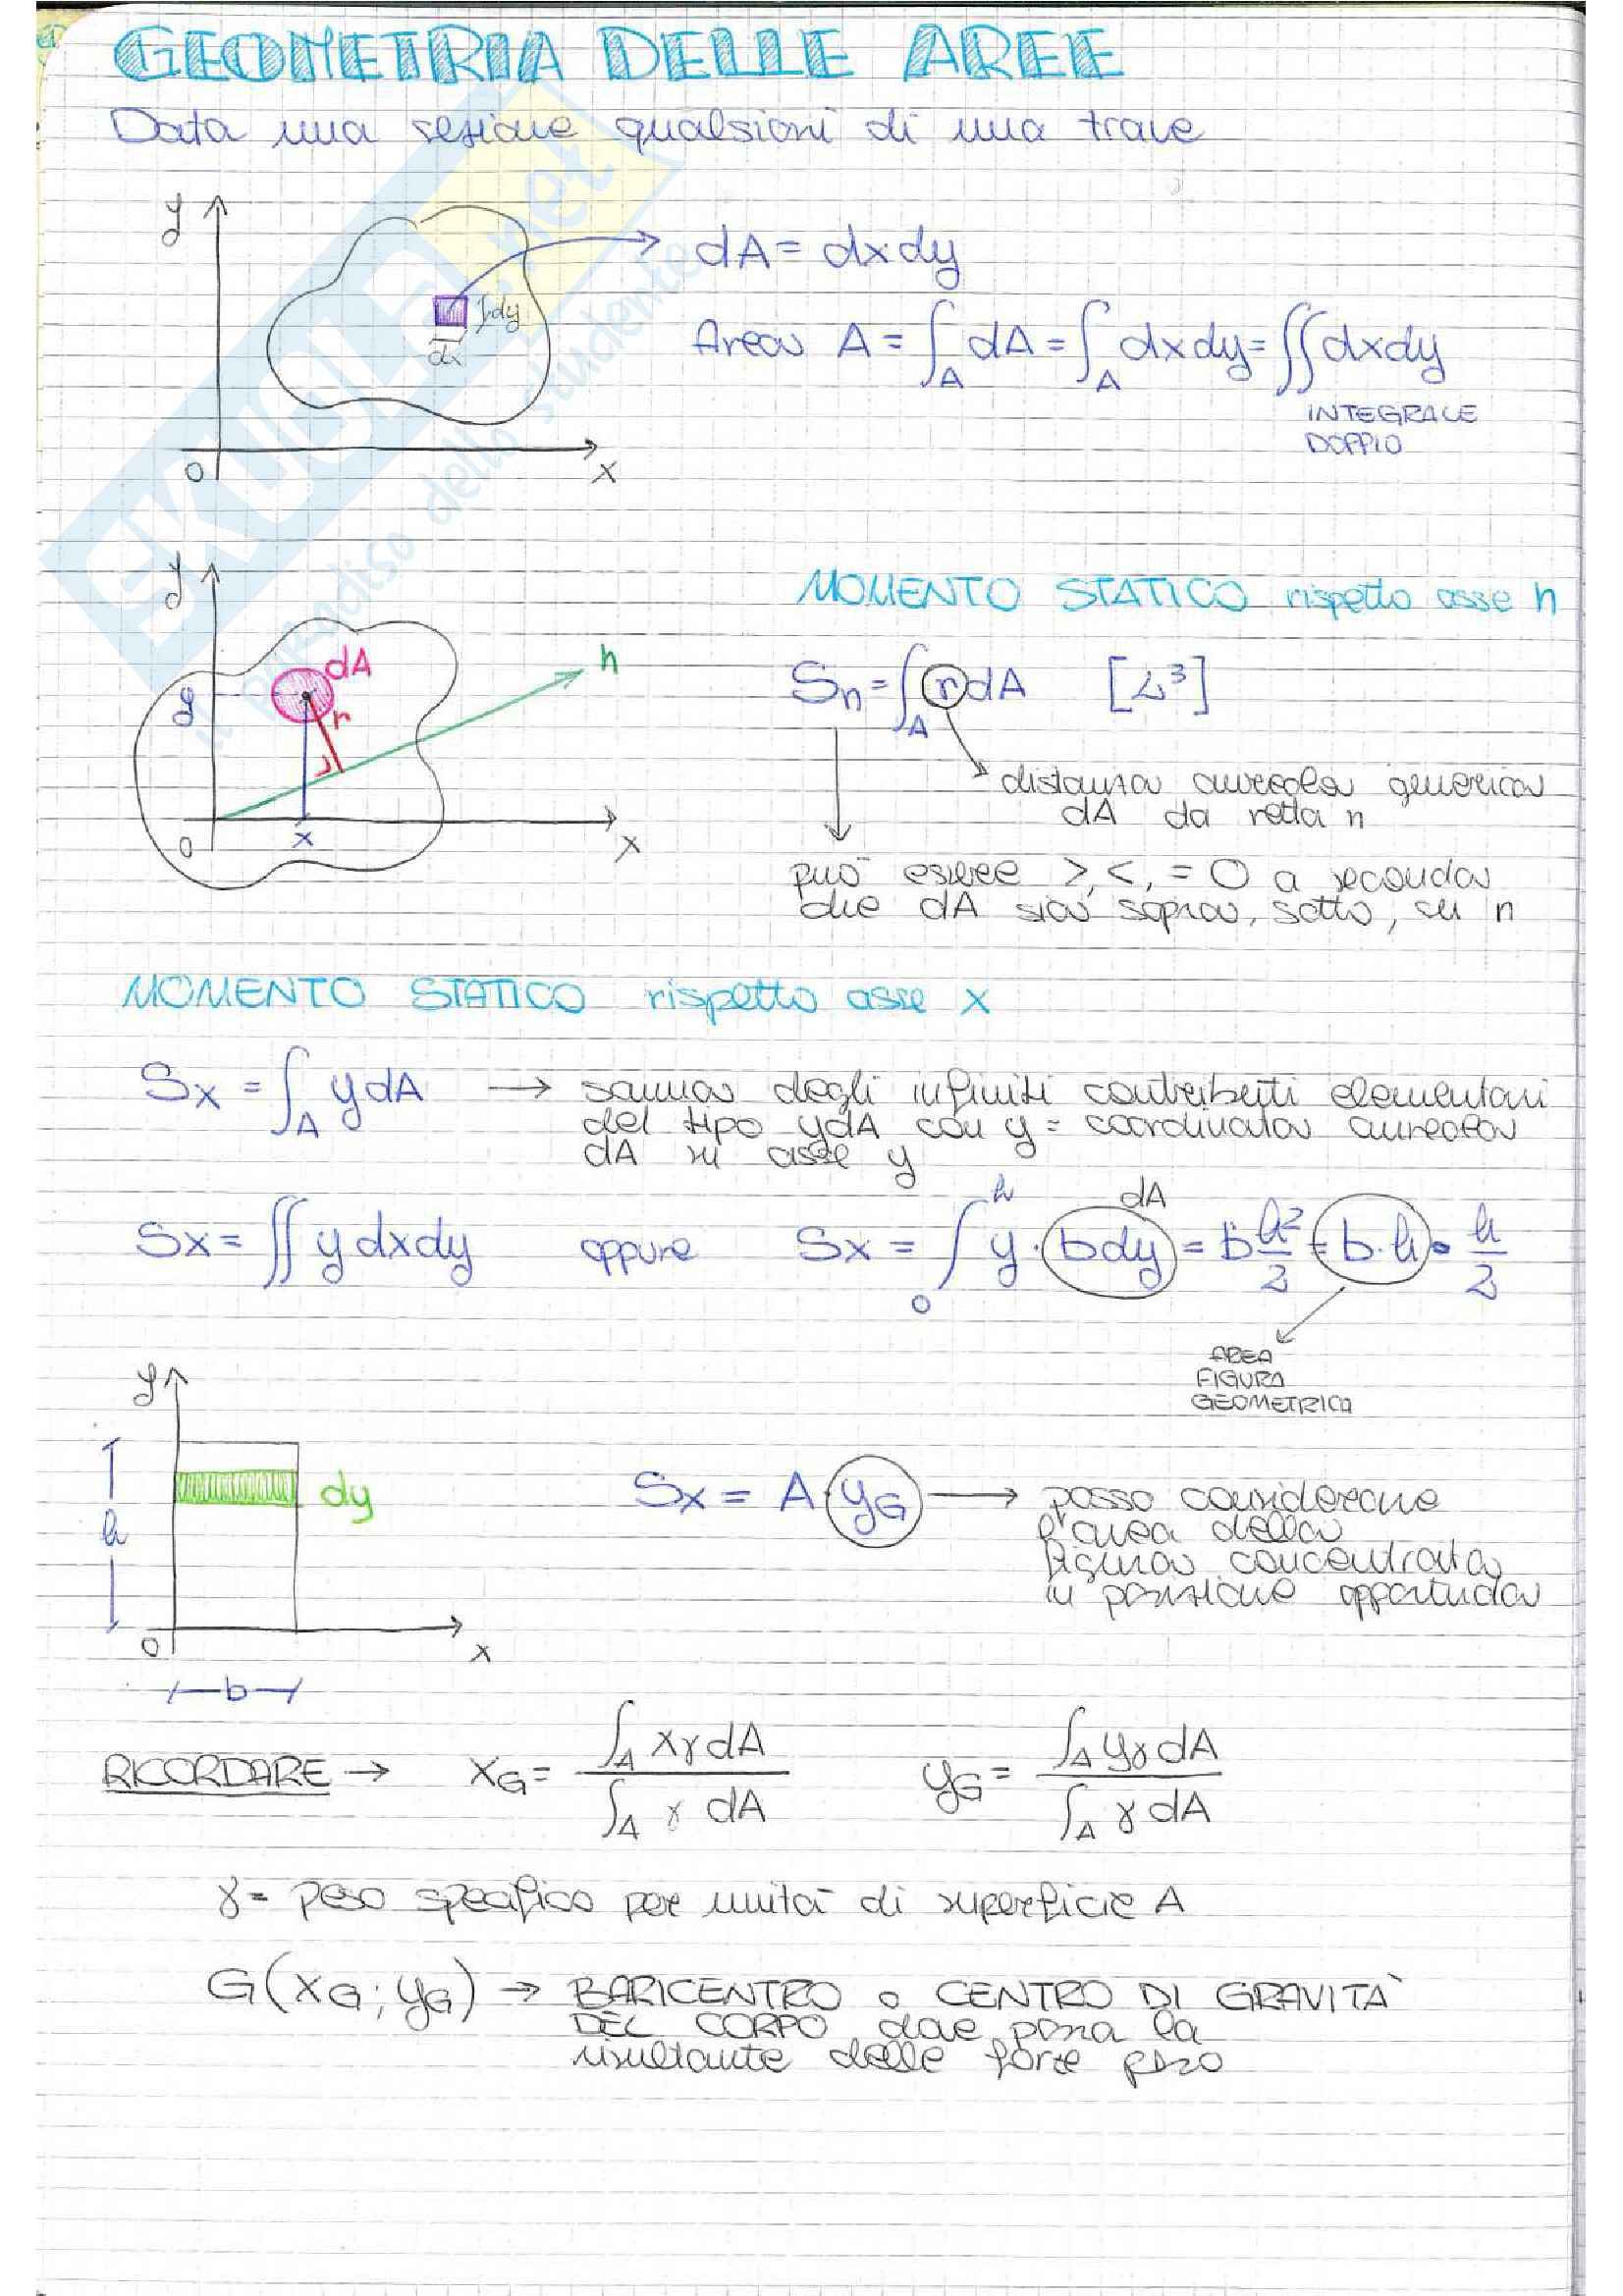 GEOMETRIA DELLE AREE
Data una sezione qualsiasi di una trave
y
dA = dxdy
dy
dx
Area A = ∫_A dA = ∫_A dxdy = ∬ dxdy
INTEGRALE
DOPPIO
O
x
SKUOLA.net
il paradiso dello studente
y
MOMENTO STATICO rispetto asse n
dA
n
y
r
S_n = ∫_A r dA [L³]
distanza areola generica
dA da retta n
O
x
x
può essere >, <, = 0 a seconda
che dA sia sopra, sotto, su n
MOMENTO STATICO rispetto asse x
Sx = ∫_A y dA → somma degli infiniti contributi elementari
del tipo ydA con y = coordinata areola
dA su asse y
Sx = ∬ y dxdy oppure Sx = ∫_0^h y · b dy = b h²/2 = b·h · h/2
dA
AREA
FIGURA
GEOMETRICA
y
h
dy
Sx = A·y_G → posso considerare
l'area della
figura concentrata
in posizione opportuna
O
x
b
RICORDARE → x_G = ∫_A xγ dA / ∫_A γ dA y_G = ∫_A yγ dA / ∫_A γ dA
γ = peso specifico per unità di superficie A
G(x_G; y_G) → BARICENTRO o CENTRO DI GRAVITÀ
DEL CORPO dove passa la
risultante delle forze peso